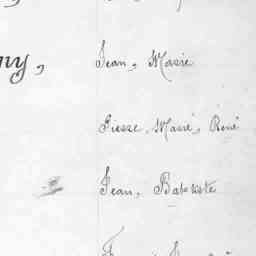 Jean, Marie
Pierre, Marie, René
Jean, Baptiste